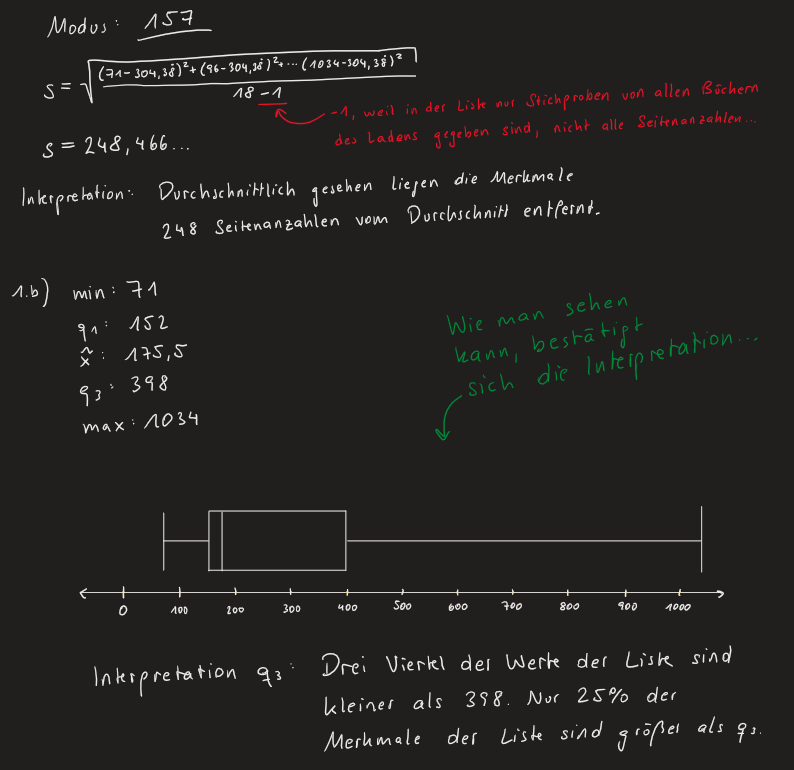 Modus: 157
s = √((71-304,38̇)²+(96-304,38̇)²+...(1034-304,38̇)² / 18-1)
-1, weil in der Liste nur Stichproben von allen Büchern
des Ladens gegeben sind, nicht alle Seitenanzahlen...
s = 248,466...
Interpretation: Durchschnittlich gesehen liegen die Merkmale
248 Seitenanzahlen vom Durchschnitt entfernt.
1.b) min: 71
q₁: 152
x̃: 175,5
q₃: 398
max: 1034
Wie man sehen
kann, bestätigt
sich die Interpretation...
0 100 200 300 400 500 600 700 800 900 1000
Interpretation q₃: Drei Viertel der Werte der Liste sind
kleiner als 398. Nur 25% der
Merkmale der Liste sind größer als q₃.